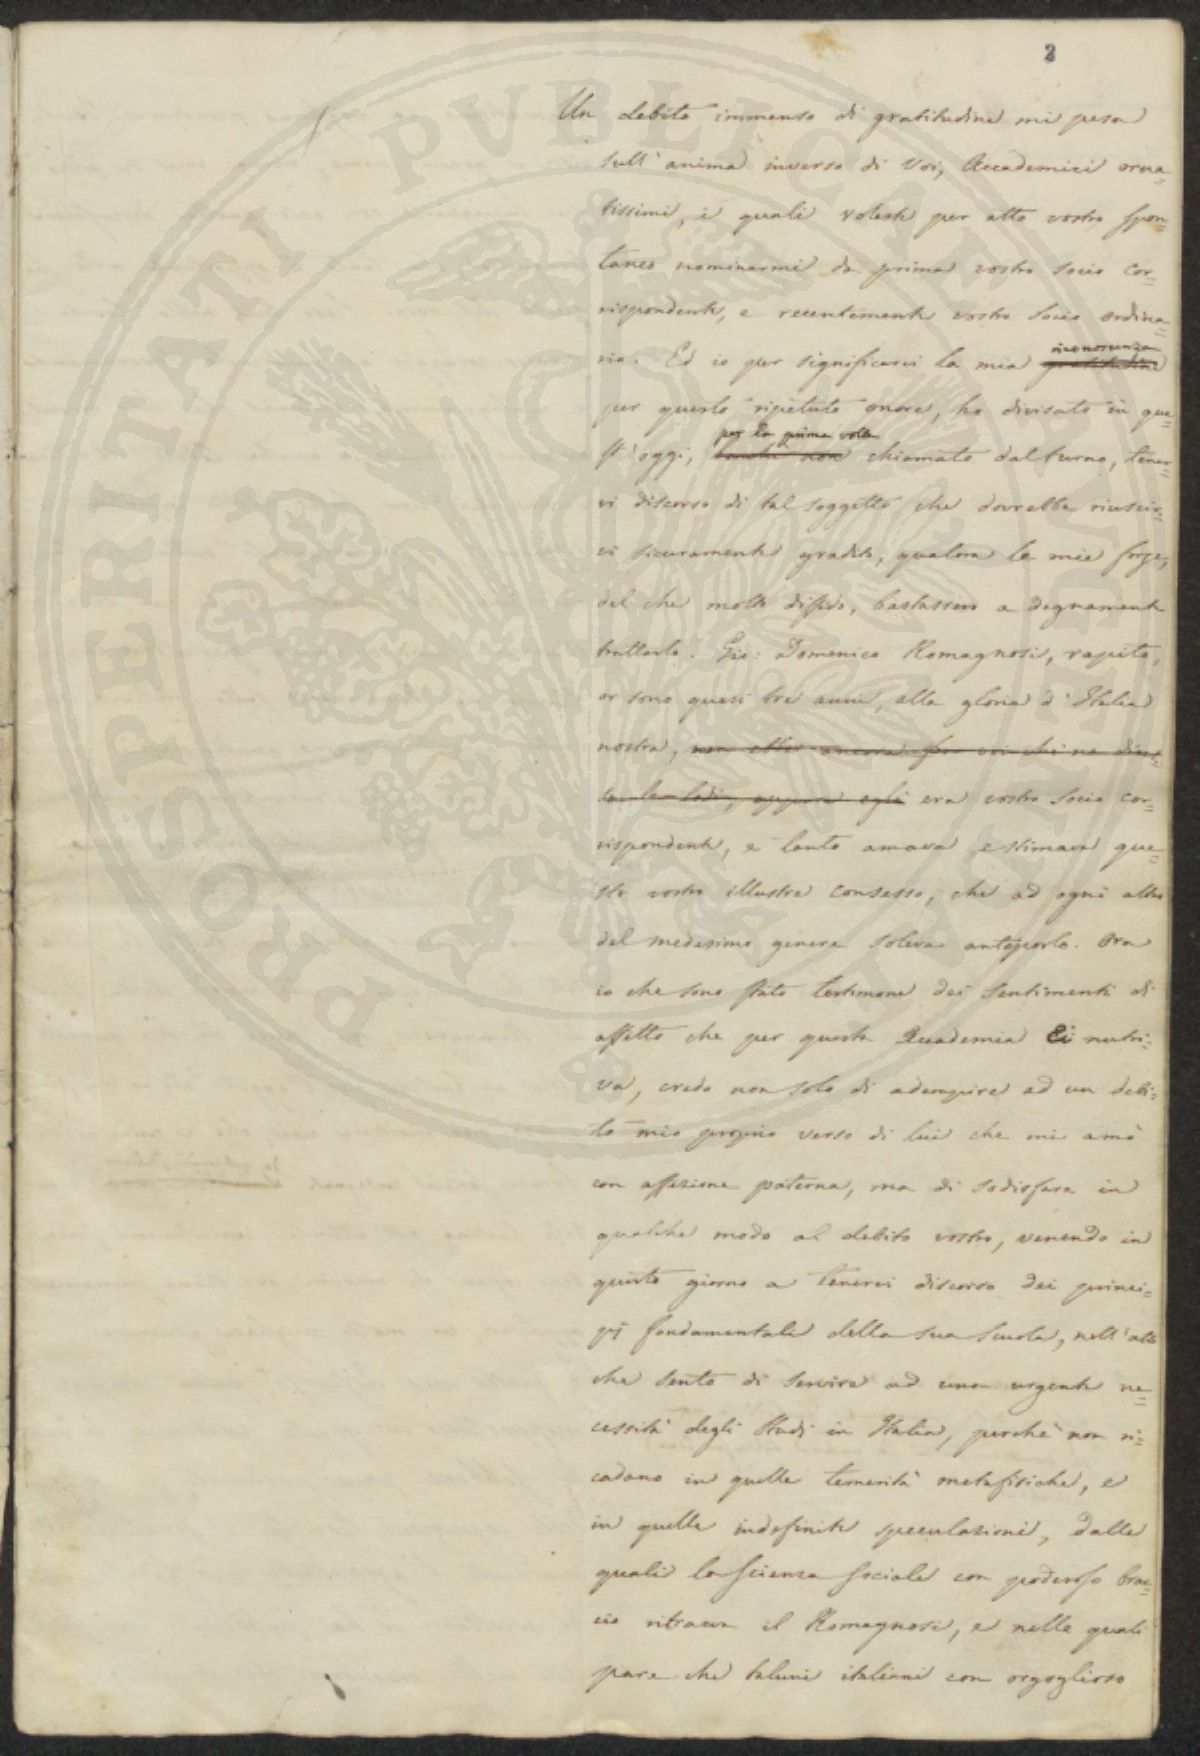 2
Un debito immenso di gratitudine mi pesa
sull'anima inverso di Voi, Accademici orna=
tissimi, i quali voleste per atto vostro spon=
taneo nominarmi da prima vostro socio cor=
rispondente, e recentemente vostro Socio ordina=
rio. Ed io per significarvi la mia gratitudine
riconoscenza
per questo ripetuto onore, ho divisato in que=
st'oggi, benchè non chiamato dal turno, tener=
per la prima volta
vi discorso di tal soggetto che dovrebbe riuscir=
vi sicuramente gradito, qualora le mie forze,
del che molto diffido, bastassero a degnamente
trattarlo. Gio: Domenico Romagnosi, rapito,
or sono quasi tre anni, alla gloria d'Italia
nostra, non ebbe ancora fra voi chi ne dices=
se le lodi, eppure egli era vostro socio cor=
rispondente, e tanto amava e stimava que=
sto vostro illustre consesso, che ad ogni altro
del medesimo genere soleva anteporlo. Ora
io che sono stato testimone dei sentimenti di
affetto che per questa Accademia Ei nutri=
va, credo non solo di adempire ad un debi=
to mio proprio verso di lui che mi amò
con affezione paterna, ma di sodisfare in
qualche modo al debito vostro, venendo in
questo giorno a tenervi discorso dei princi=
pj fondamentali della sua scuola, nell'atto
che sento di servire ad una urgente ne=
cessità degli studj in Italia, perchè non ri=
cadano in quelle temerità metafisiche, e
in quelle indefinite speculazioni, dalle
quali la scienza sociale con poderoso brac=
cio ritraeva il Romagnosi, e nelle quali
pare che taluni italiani con orgoglioso
PROSPERITATI PVBLICAE